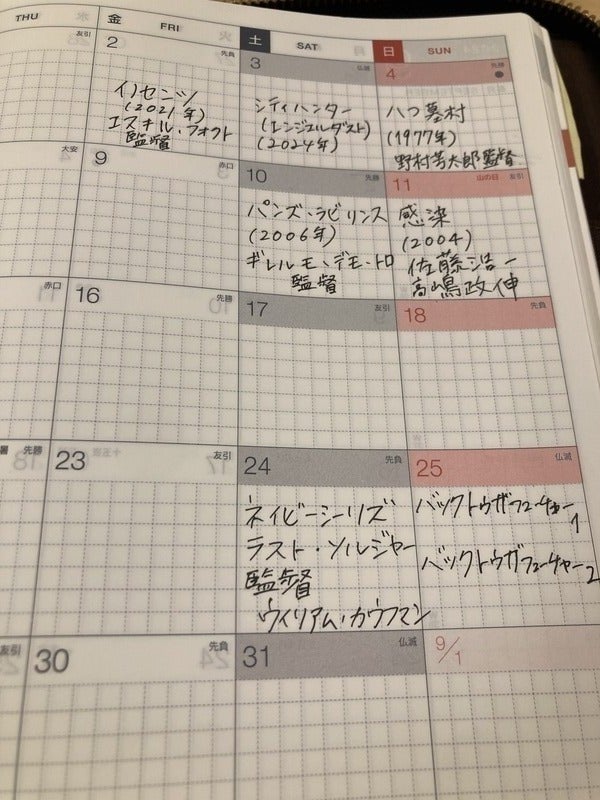 THU
金 FRI
土 SAT
日 SUN
友引
2 先負
3 仏滅
4 先勝
イノセンツ
(2021年)
エスキル・フォクト
監督
シティハンター
(エンジェルダスト)
(2024年)
八つ墓村
(1977年)
野村芳太郎監督
大安
9 赤口
10 先勝
11 山の日 友引
パンズ、ラビリンス
(2006年)
ギレルモ・デモ・トロ
監督
感染
(2004)
佐藤浩一
高嶋政伸
赤口
16 先勝
17 友引
18 先負
先勝
23 友引
24 先負
25 仏滅
ネイビーシーリズ
ラスト・ソルジャー
監督
ウィリアム・カウフマン
バックトゥザフューチャー
1
バックトゥザフューチャー2
友引
30 先負
31 仏滅
9/1